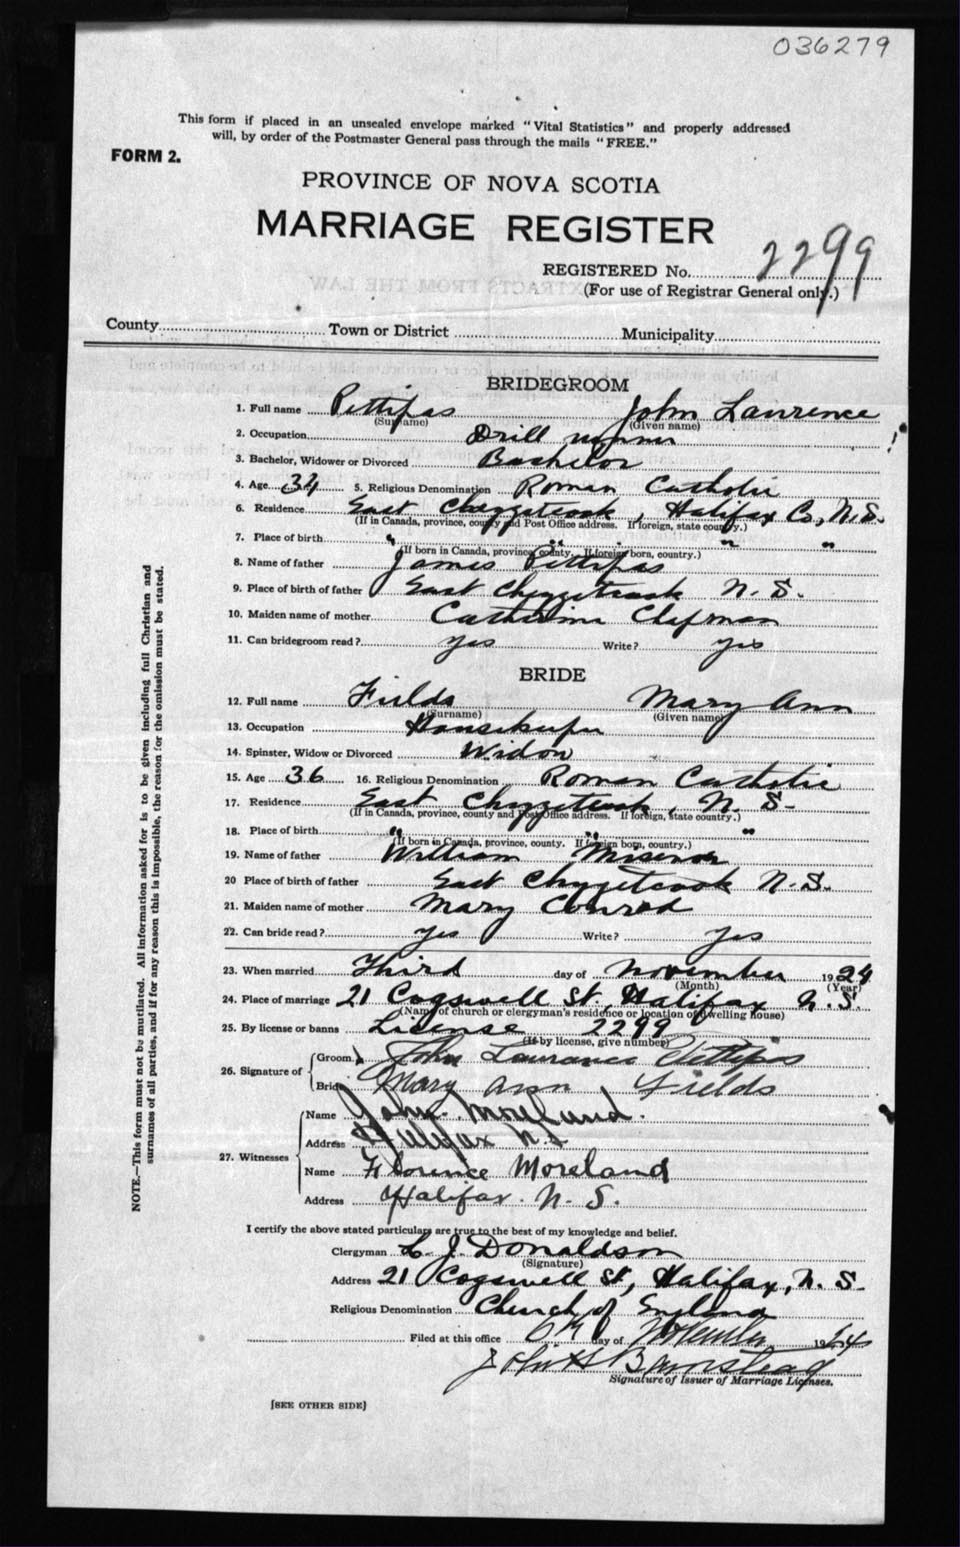 036279
This form if placed in an unsealed envelope marked "Vital Statistics" and properly addressed
will, by order of the Postmaster General pass through the mails "FREE."
FORM 2.
PROVINCE OF NOVA SCOTIA
MARRIAGE REGISTER
REGISTERED No. 2299
(For use of Registrar General only.)
County Town or District Municipality
BRIDEGROOM
1. Full name Pettipas John Lawrence
(Surname) (Given name)
2. Occupation Drill runner
3. Bachelor, Widower or Divorced Bachelor
4. Age 34 5. Religious Denomination Roman Catholic
6. Residence East Chezzetcook, Halifax Co, N.S.
(If in Canada, province, county and Post Office address. If foreign, state country.)
7. Place of birth " " " "
(If born in Canada, province, county. If foreign born, country.)
8. Name of father James Pettipas
9. Place of birth of father East Chezzetcook N. S.
10. Maiden name of mother Catherine Chapman
11. Can bridegroom read? yes Write? yes
BRIDE
12. Full name Fields Mary Ann
(Surname) (Given name)
13. Occupation Housekeeper
14. Spinster, Widow or Divorced Widow
15. Age 36 16. Religious Denomination Roman Catholic
17. Residence East Chezzetcook, N. S-
(If in Canada, province, county and Post Office address. If foreign, state country.)
18. Place of birth " " "
(If born in Canada, province, county. If foreign born, country.)
19. Name of father William Misener
20 Place of birth of father East Chezzetcook N. S.
21. Maiden name of mother Mary Conrod
22. Can bride read? yes Write? yes
23. When married Third day of November 1924
(Month) (Year)
24. Place of marriage 21 Cogswell St, Halifax N. S.
(Name of church or clergyman's residence or location of dwelling house)
25. By license or banns License 2299
(If by license, give number)
26. Signature of Groom John Lawrance Pettipas
Bride Mary Ann Fields
27. Witnesses Name John Moreland.
Address Halifax N.S
Name Florence Moreland
Address Halifax. N. S.
I certify the above stated particulars are true to the best of my knowledge and belief.
Clergyman C. J. Donaldson
(Signature)
Address 21 Cogswell St, Halifax, N. S.
Religious Denomination Church of England
Filed at this office day of November 1924
John H Barnstead
Signature of Issuer of Marriage Licenses.
[SEE OTHER SIDE]
NOTE.—This form must not be mutilated. All information asked for is to be given including full Christian and
surnames of all parties, and if for any reason this is impossible, the reason for the omission must be stated.